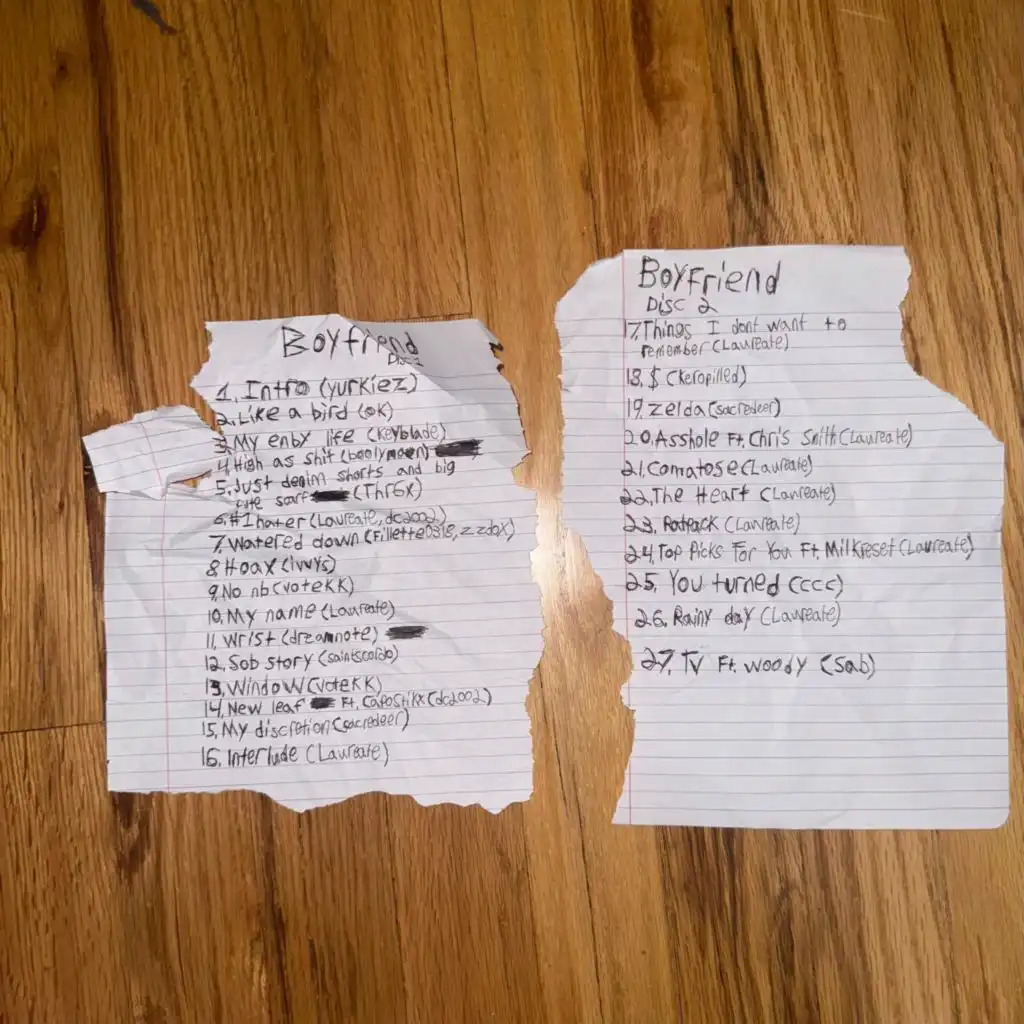 Boyfriend
Disc 1
1. Intro (yurkiez)
2. Like a bird (ok)
3. My enby life (Keyblade)
4. High as shit (boolymoon)
5. Just denim shorts and big
cute scarf (Thr6x)
6. #1 hater (Laureate, dc2002)
7. Watered down (Fillette0318, zzdbx)
8. Hoax (ivvys)
9. No nb (voteKK)
10. My name (Laureate)
11. Wrist (dreamnote)
12. Sob story (saintscordo)
13. Window (voteKK)
14. New leaf Ft. Capostikx (dc2002)
15. My discretion (sacredeer)
16. Interlude (Laureate)
Boyfriend
Disc 2
17. Things I dont want to
remember (Laureate)
18. $ (keropilled)
19. Zelda (sacredeer)
20. Asshole Ft. Chris Smith (Laureate)
21. Comatose (Laureate)
22. The Heart (Laureate)
23. (Laureate)
24. Top Picks For You Ft. Milkreset (Laureate)
25. You turned (cccc)
26. Rainy day (Laureate)
27. TV Ft. Woody (Sab)